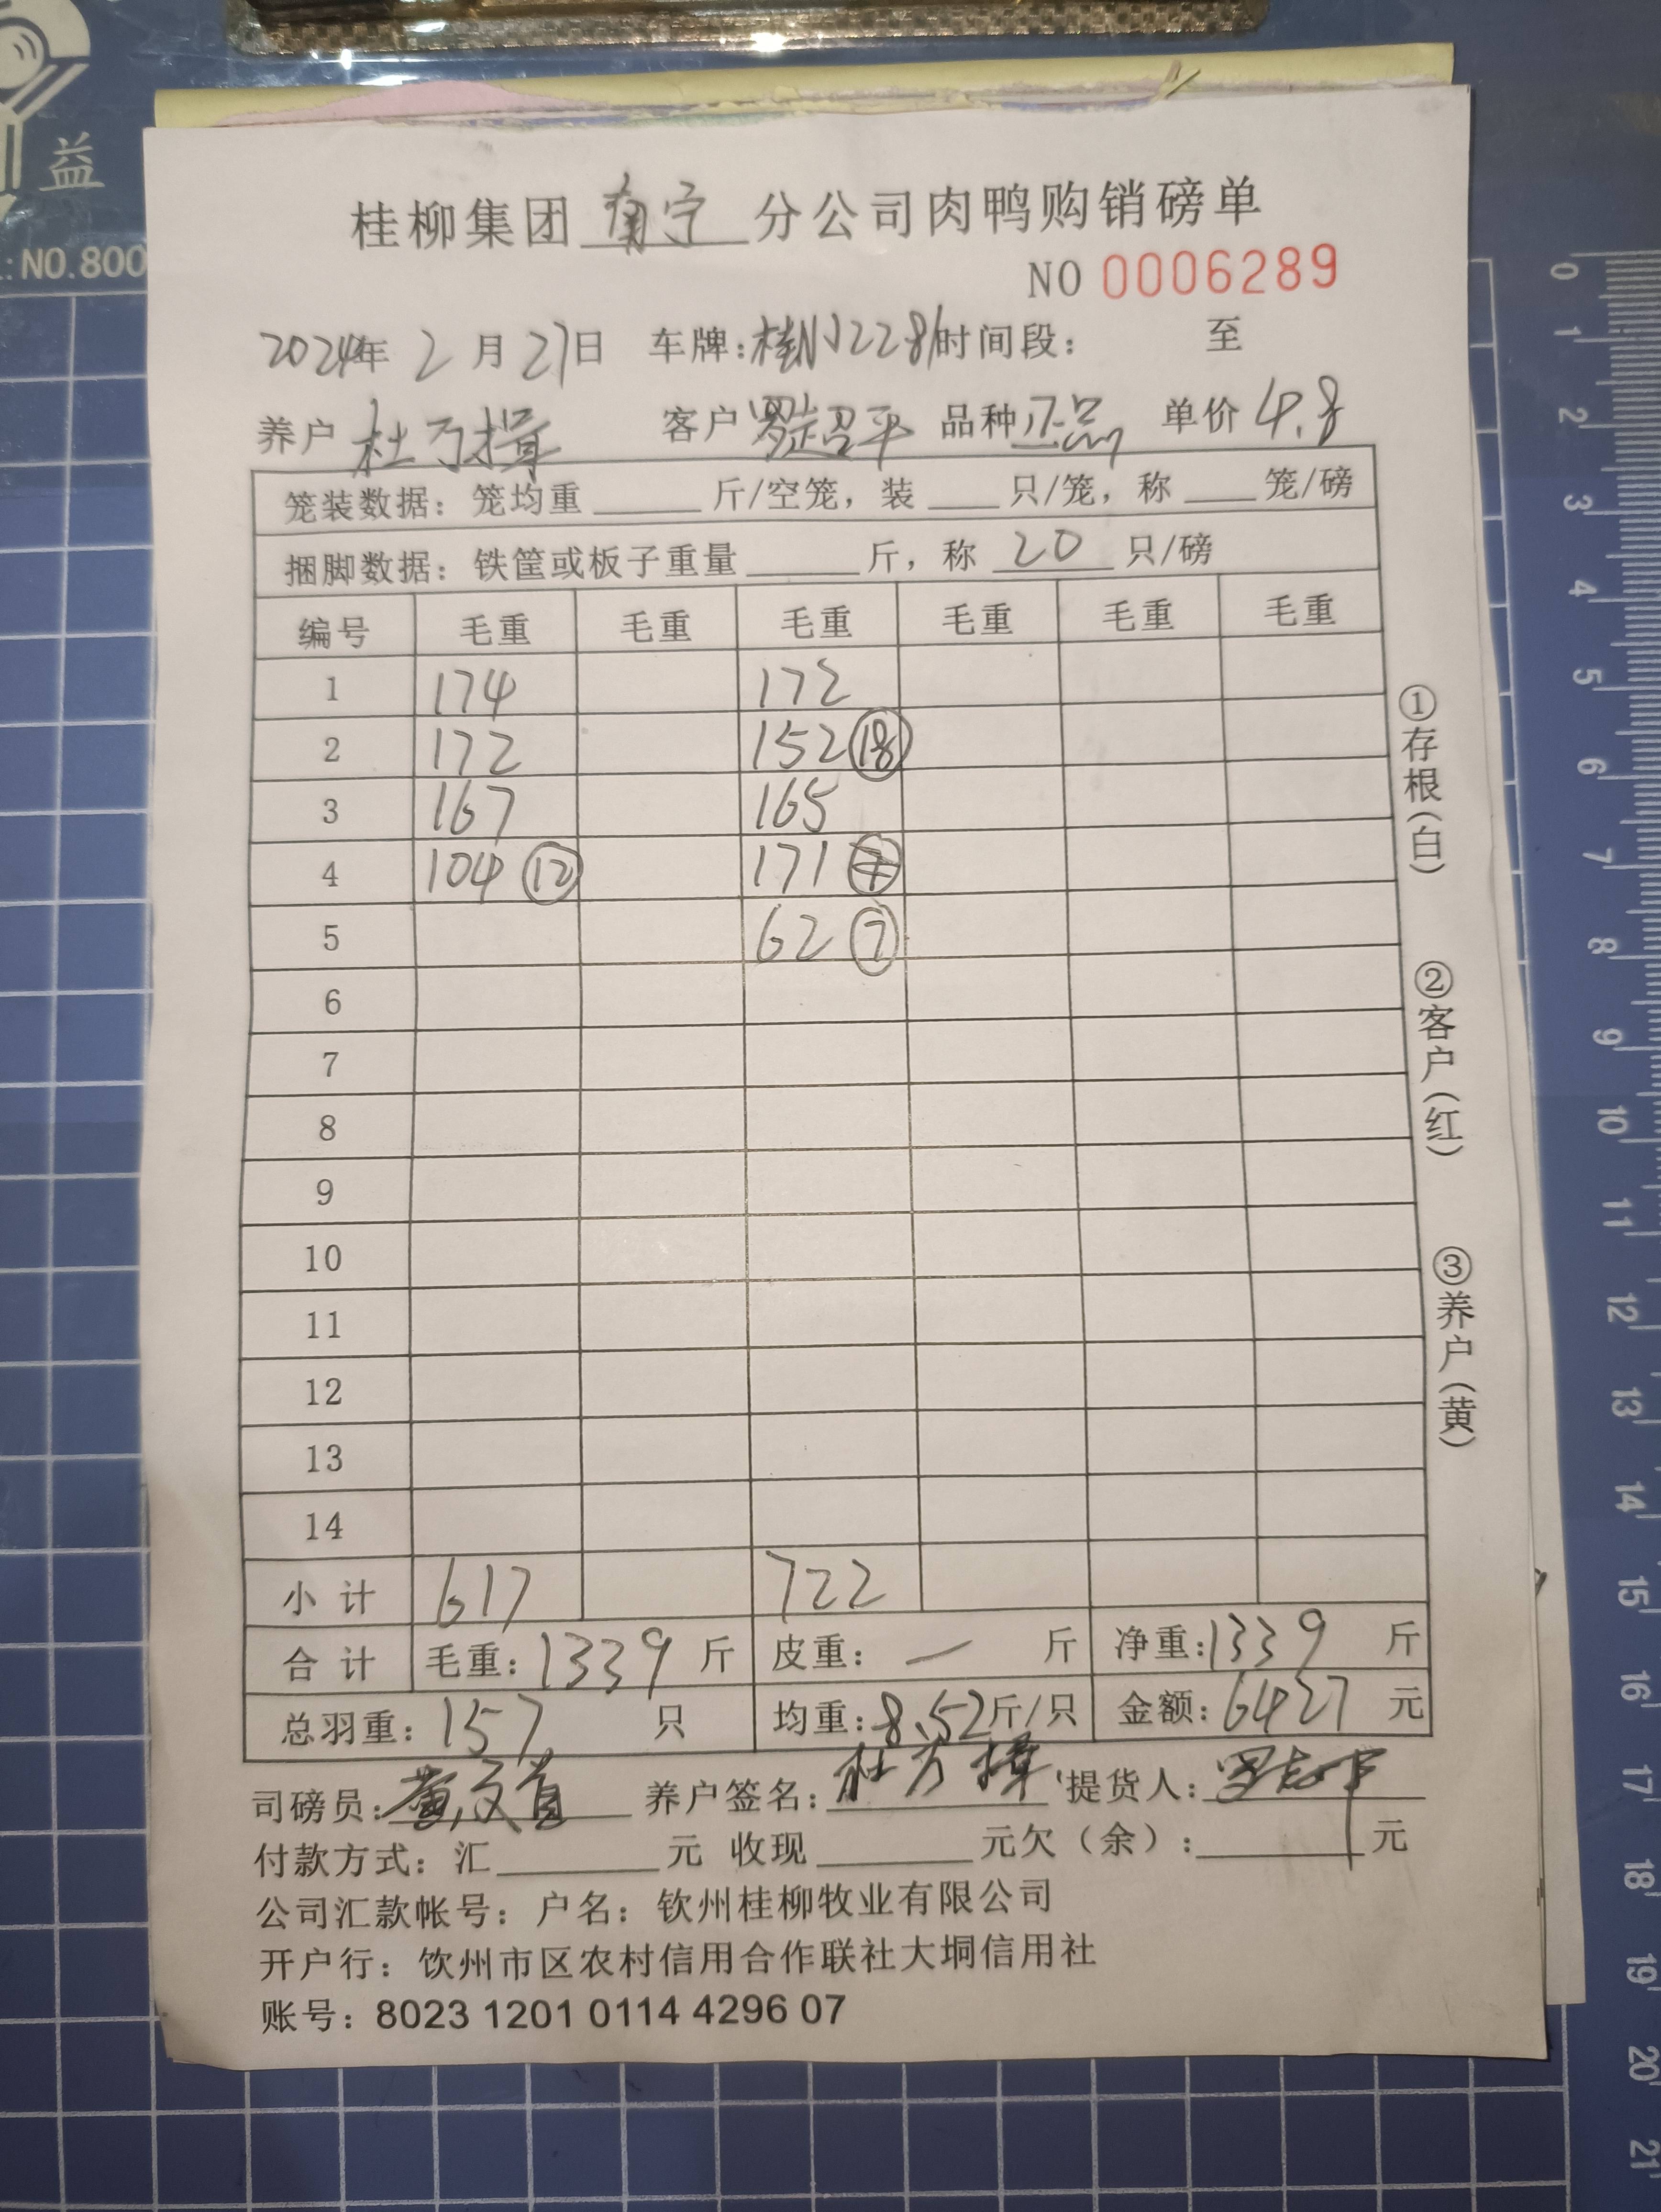 益
NO.800
桂柳集团 南宁 分公司肉鸭购销磅单
NO 0006289
2024年 2 月 27日 车牌: 时间段: 至
养户 杜万 客户 罗超平 品种 正品 单价 4.8
笼装数据: 笼均重 斤/空笼, 装 只/笼, 称 笼/磅
捆脚数据: 铁筐或板子重量 斤, 称 20 只/磅
编号 毛重 毛重 毛重 毛重 毛重 毛重
1 174 172
2 172 152 ⑱
3 167 165
4 104 ⑫ 171
5 62 ⑦
6
7
8
9
10
11
12
13
14
小 计 617 722
合 计 毛重: 1339 斤 皮重: 一 斤 净重: 1339 斤
总羽重: 157 只 均重: 8.52 斤/只 金额: 6427 元
司磅员: 养户签名: 杜万 提货人:
付款方式: 汇 元 收现 元欠(余): 元
公司汇款帐号: 户名: 钦州桂柳牧业有限公司
开户行: 钦州市区农村信用合作联社大垌信用社
账号: 8023 1201 0114 4296 07
①存根(白)
②客户(红)
③养户(黄)
0
1
2
3
4
5
6
7
8
9
10
11
12
13
14
15
16
17
18
19
20
21